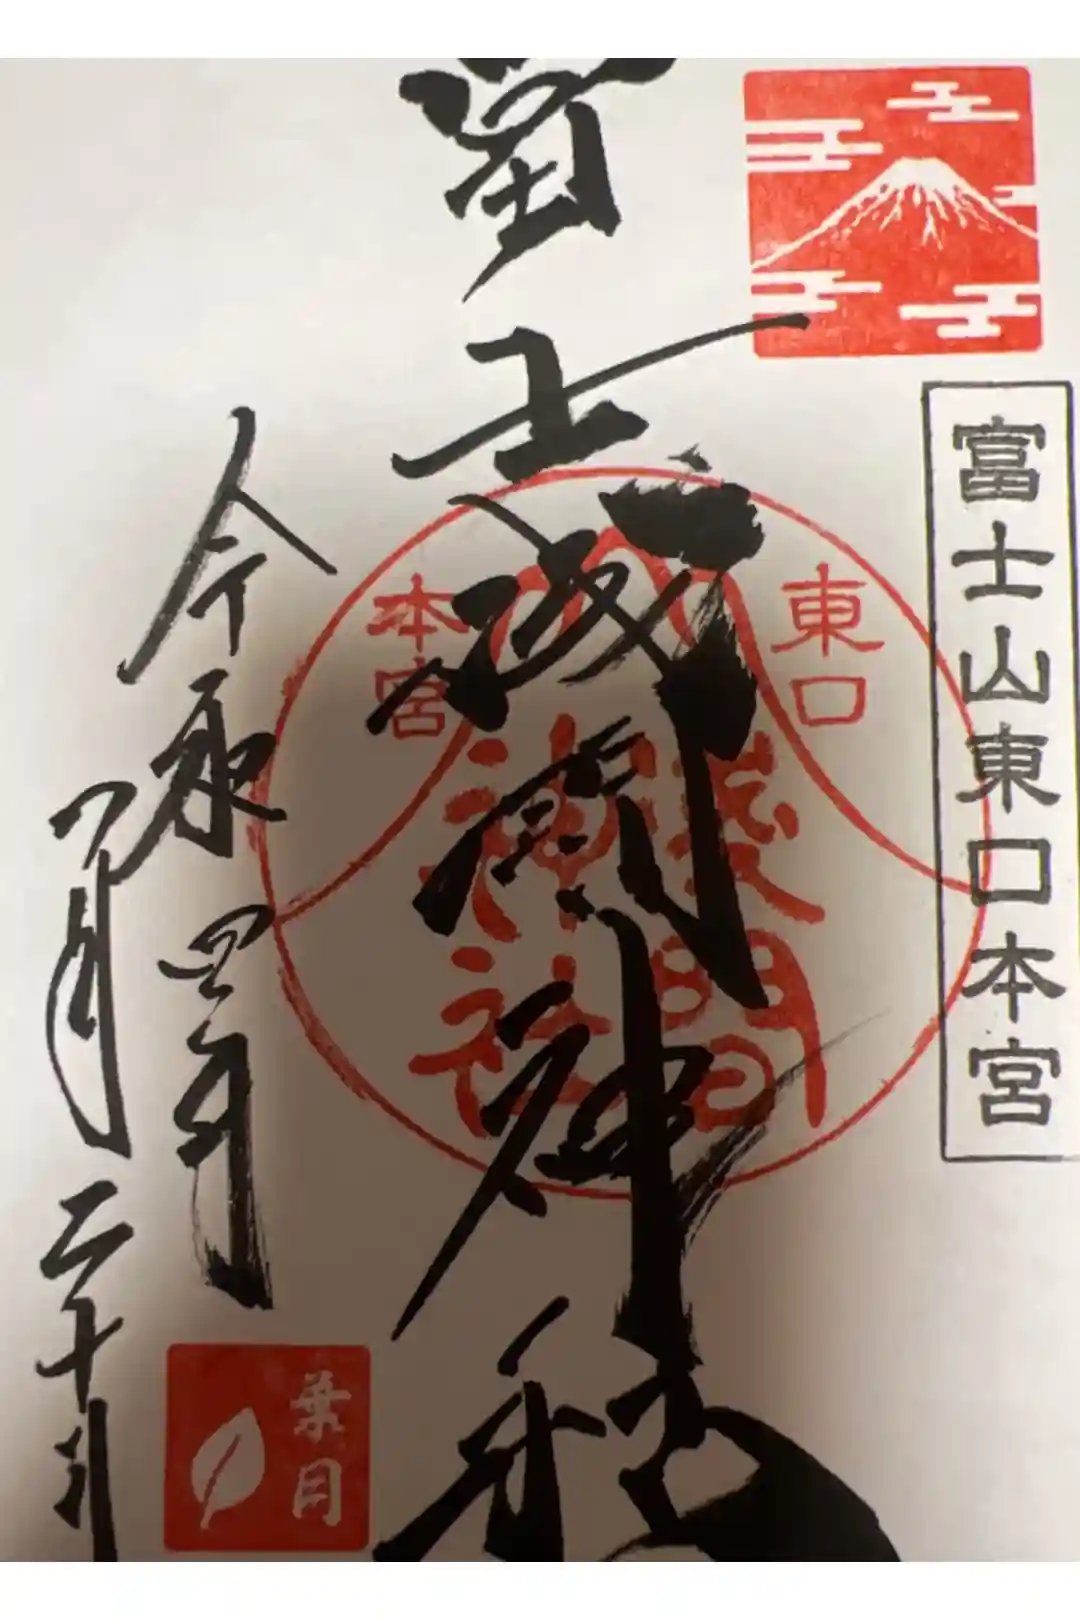 富士山東口本宮
冨士浅間神社
東口
本宮
淺間
神社
令和四年
八月二十日
葉月